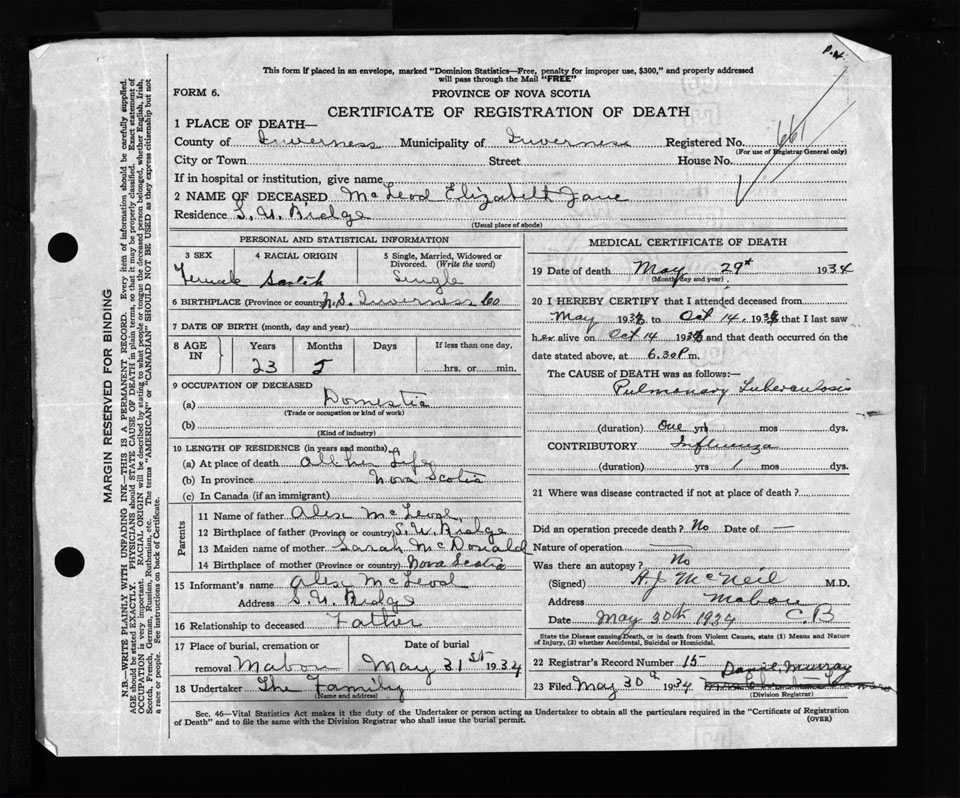 P.H.
This form if placed in an envelope, marked "Dominion Statistics—Free, penalty for improper use, $300," and properly addressed
will pass through the Mail "FREE"
FORM 6.
PROVINCE OF NOVA SCOTIA
CERTIFICATE OF REGISTRATION OF DEATH
1 PLACE OF DEATH—
County of Inverness Municipality of Inverness Registered No. 661
(For use of Registrar General only)
City or Town Street House No.
If in hospital or institution, give name
2 NAME OF DECEASED McLeod Elizabeth Jane
Residence S. W. Ridge
(Usual place of abode)
PERSONAL AND STATISTICAL INFORMATION
3 SEX 4 RACIAL ORIGIN 5 Single, Married, Widowed or
Divorced. (Write the word)
Female Scotch Single
6 BIRTHPLACE (Province or country) N.S. Inverness Co
7 DATE OF BIRTH (month, day and year)
8 AGE IN Years Months Days If less than one day,
23 5 hrs. or min.
9 OCCUPATION OF DECEASED
(a) Domestic
(Trade or occupation or kind of work)
(b)
(Kind of industry)
10 LENGTH OF RESIDENCE (in years and months)
(a) At place of death All her Life
(b) In province Nova Scotia
(c) In Canada (if an immigrant)
Parents
11 Name of father Alex McLeod
12 Birthplace of father (Province or country) S. W. Ridge
13 Maiden name of mother Sarah McDonald
14 Birthplace of mother (Province or country) Nova Scotia
15 Informant's name Alex McLeod
Address S. W. Ridge
16 Relationship to deceased Father
17 Place of burial, cremation or Date of burial
removal Mabou May 31st 1934
18 Undertaker The Family
(Name and address)
MEDICAL CERTIFICATE OF DEATH
19 Date of death May 29th 1934
(Month, day and year)
20 I HEREBY CERTIFY that I attended deceased from
May 193 to Oct 14, 193 that I last saw
her alive on Oct 14 193 and that death occurred on the
date stated above, at 6.30 P m.
The CAUSE of DEATH was as follows:—
Pulmonary Tuberculosis
(duration) One yrs mos dys.
CONTRIBUTORY Influenza
(duration) yrs 1 mos dys.
21 Where was disease contracted if not at place of death?
Did an operation precede death? No Date of —
Nature of operation —
Was there an autopsy? No
(Signed) A.J. McNeil M.D.
Address Mabou
Date May 30th 1934 C.B
State the Disease causing Death, or in death from Violent Causes, state (1) Means and Nature
of Injury, (2) whether Accidental, Suicidal or Homicidal.
22 Registrar's Record Number 15
Daniel Murray
23 Filed May 30th 1934
(Division Registrar)
Sec. 46—Vital Statistics Act makes it the duty of the Undertaker or person acting as Undertaker to obtain all the particulars required in the "Certificate of Registration
of Death" and to file the same with the Division Registrar who shall issue the burial permit.
(OVER)
MARGIN RESERVED FOR BINDING
N.B.—WRITE PLAINLY WITH UNFADING INK—THIS IS A PERMANENT RECORD. Every item of information should be carefully supplied.
AGE should be stated EXACTLY. PHYSICIANS should STATE CAUSE OF DEATH in plain terms, so that it may be properly classified. Exact statement of
OCCUPATION is very important. RACIAL ORIGIN will be described by stating to what people or tongue the deceased person belonged, whether English, Irish,
Scotch, French, German, Russian, Ruthenian, etc. The terms "AMERICAN" or "CANADIAN" SHOULD NOT BE USED as they express citizenship but not
a race or people. See instructions on back of Certificate.